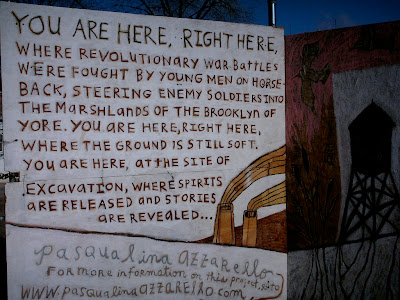 YOU ARE HERE, RIGHT HERE,
WHERE REVOLUTIONARY WAR BATTLES
WERE FOUGHT BY YOUNG MEN ON HORSE-
BACK, STEERING ENEMY SOLDIERS INTO
THE MARSHLANDS OF THE BROOKLYN OF
YORE. YOU ARE HERE, RIGHT HERE,
WHERE THE GROUND IS STILL SOFT.
YOU ARE HERE, AT THE SITE OF
EXCAVATION, WHERE SPIRITS
ARE RELEASED and STORIES
ARE REVEALED...
pasqualina azzarello
FOR MORE INFORMATION on this project, go to
WWW.pasqualinaazzarello.com